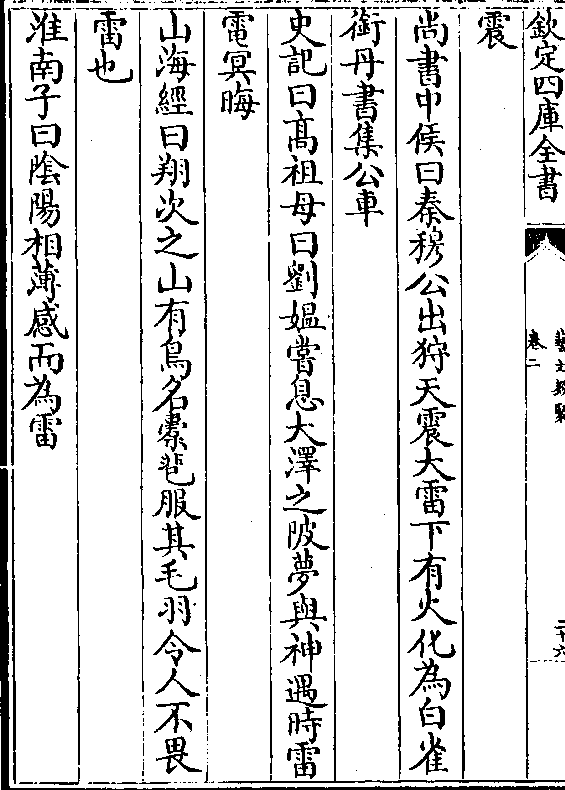 欽定四庫全書
藝文類聚
卷二
二十六
震
尚書中侯曰秦穆公出狩天震大雷下有火化為白雀
銜丹書集公車
史記曰髙祖母曰劉媼嘗息大澤之陂夢與神遇時雷
電冥晦
山海經曰翔次之山有鳥名橐服其毛羽令人不畏
雷也
淮南子曰陰陽相薄感而為雷